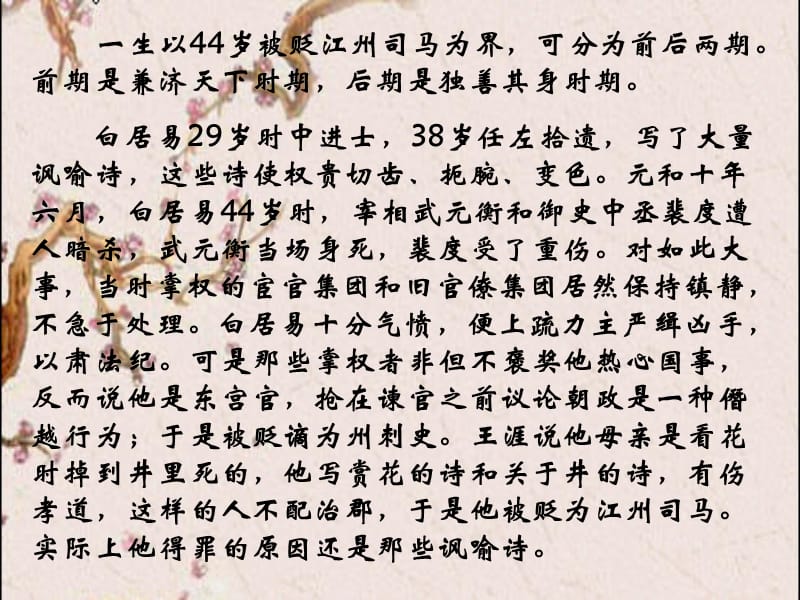 。
一生以44岁被贬江州司马为界，可分为前后两期。
前期是兼济天下时期，后期是独善其身时期。
白居易29岁时中进士，38岁任左拾遗，写了大量
讽喻诗，这些诗使权贵切齿、扼腕、变色。元和十年
六月，白居易44岁时，宰相武元衡和御史中丞裴度遭
人暗杀，武元衡当场身死，裴度受了重伤。对如此大
事，当时掌权的宦官集团和旧官僚集团居然保持镇静，
不急于处理。白居易十分气愤，便上疏力主严缉凶手，
以肃法纪。可是那些掌权者非但不褒奖他热心国事，
反而说他是东宫官，抢在谏官之前议论朝政是一种僭
越行为；于是被贬谪为州刺史。王涯说他母亲是看花
时掉到井里死的，他写赏花的诗和关于井的诗，有伤
孝道，这样的人不配治郡，于是他被贬为江州司马。
实际上他得罪的原因还是那些讽喻诗。